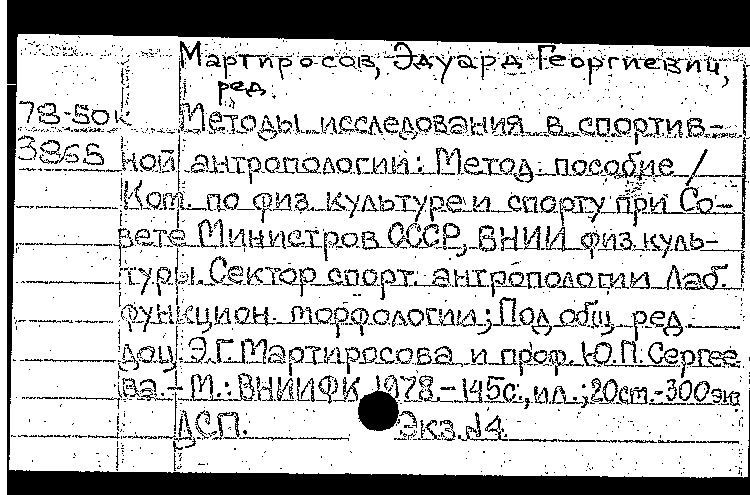 Мартиросов, Эдуард Георгиевич,
ред.
78-50к Методы исследования в спортив-
3865 ной антропологии: Метод. пособие /
Ком. по физ. культуре и спорту при Со-
вете Министров СССР, ВНИИ физ. куль-
туры. Сектор спорт. антропологии Лаб.
функцион. морфологии; Под общ. ред.
доц. Э.Г. Мартиросова и проф. Ю.П. Сергее
ва. - М.: ВНИИФК, 1978. - 145с., ил.; 20см. - 300экз
ДСП. Экз.№4.